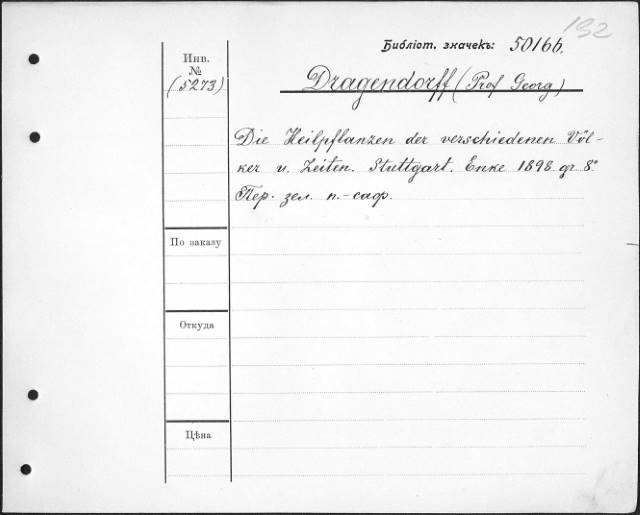 192
Библіот. значекъ: 5016б.
Инв.
№
(5273)
Dragendorff (Prof Georg)
Die Heilpflanzen der verschiedenen Völ-
ker u. Zeiten. Stuttgart. Enke 1898. gr. 8°.
Пер. зел. п.-саф.
По заказу
Откуда
Цѣна